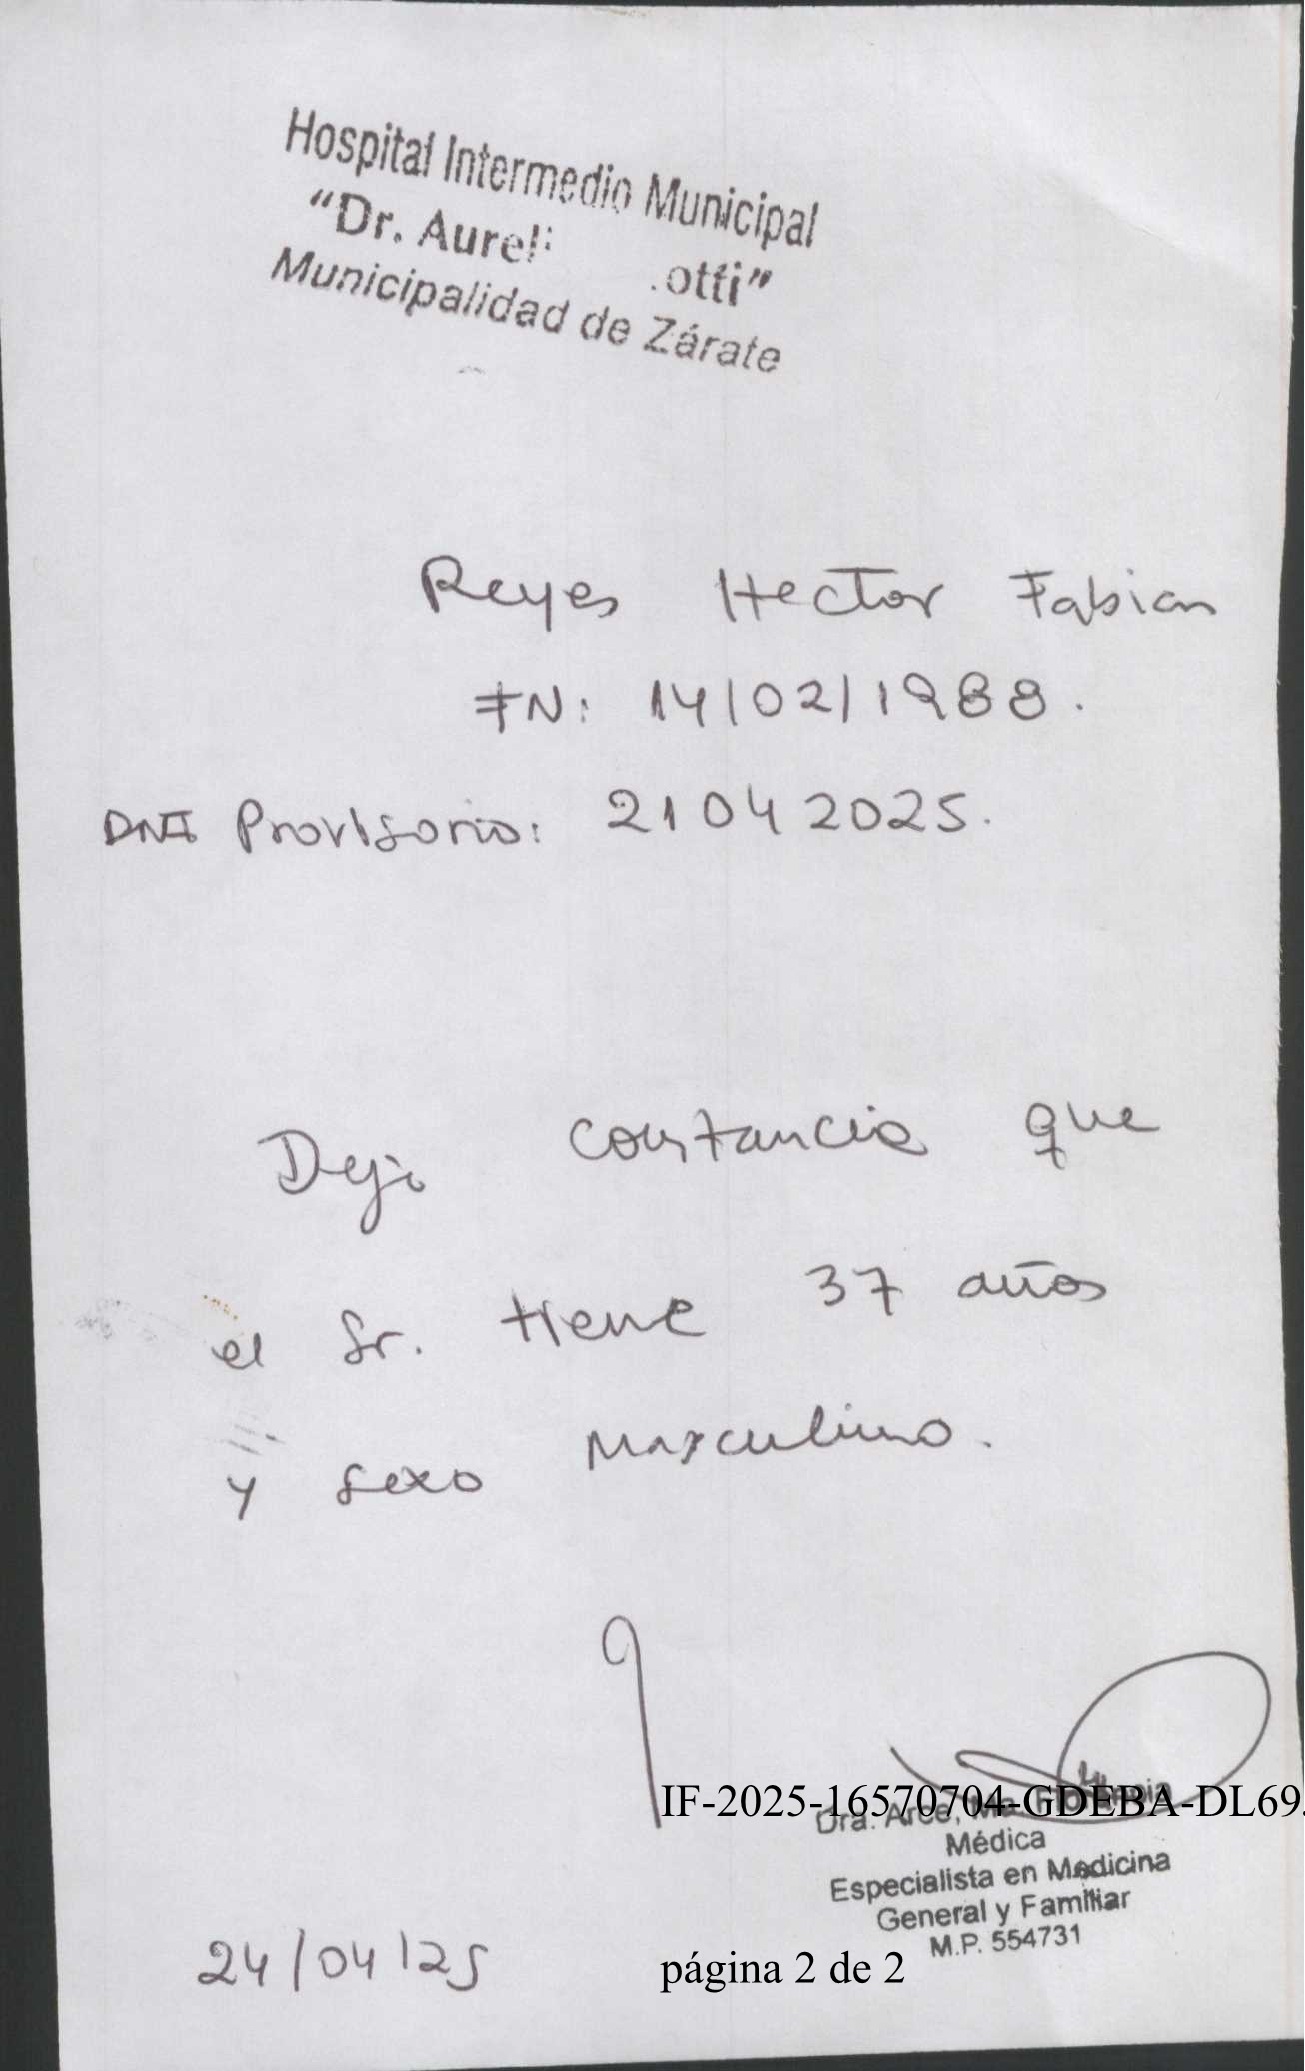 Hospital Intermedio Municipal
"Dr. Aureli otti"
Municipalidad de Zárate
Reyes Hector Fabian
FN: 14/02/1988.
DNI Provisorio: 21042025.
Dejo constancia que
el Sr. tiene 37 años
y sexo Masculino.
IF-2025-16570704-GDEBA-DL69
Dra. Arce, Ma. Florencia
Médica
Especialista en Medicina
General y Familiar
M.P. 554731
24/04/25
página 2 de 2